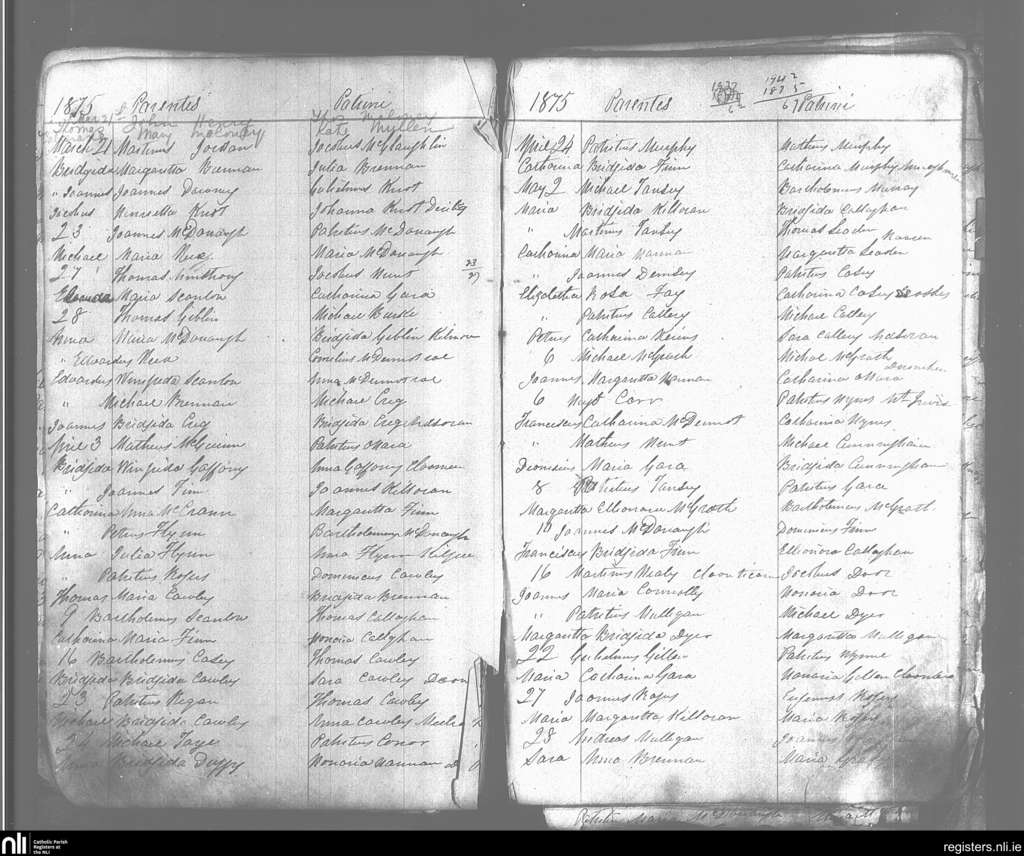 1875 Parentes Patrini
Thomas John Henry
Mary McConry Kate Mullen
March 21 Martinus Jordan Jacobus McGlaughlin
Bridgida Margaritta Brennan Julia Brennan
" Joannes Joannes Davaney Gulielmus Knot
Jacobus Henrietta Knot Johanna Knot
23 Joannes McDonaugh Patritus McDonaugh
Michael Maria Maria McDonaugh
27 Thomas Armstrong Jacobus Hunt
23
27
Maria Scanlon Catharina Gara
28 Thomas Giblin Michael Burke
Anna Maria McDonaugh Bridjida Giblin
" Edwardus Cornelius McDermotroe
Edwardus Winifrida Scanlon Anna McDermotroe
" Michael Brennan Michael Creg
Joannes Bridjida Creg Bridjida Creg
April 3 Matheus McGuinn Patritus OHara
Bridjida Winifrida Gaffony Anna Gaffony Cloomeen
" Joannes Finn Joannes Killoran
Catharina Anna McCrann Margaritta Finn
" Petrus Flynn Bartholomeus McDonaugh
Anna Julia Flynn Anna Flynn
" Patritus Rogers Dominicus Cawley
Thomas Maria Cawley Bridjida Brennan
9 Bartholemus Scanlon Thomas Callaghan
Catharina Maria Finn Honoria Callaghan
16 Bartholemus Casey Thomas Cawley
Bridjida Bridjida Cawley Sara Cawley
23 Patritus Regan Thomas Cawley
Michael Bridjida Cawley Anna Cawley
24 Michael Taye Patritus Conor
Anna Bridjida Duffy Honoria Hannan
1875 Parentes Patrini
1942
1875
67
April 24 Patritus Murphy Matheus Murphy
Catharina Bridjida Finn Catharina Murphy
May 2 Michael Tansey Bartholemus Murray
Maria Bridjida Killoran Bridjida Callaghan
" Martinus Tansey Thomas Leaden
Catharina Maria Hannan Margaritta Leaden
" Joannes Demsey Patritus Casey
Elizabetha Rosa Fay Catharina Casey
" Patritus Callery Michael Callery
Petrus Catharina Keirns Sara Callery
6 Michael McGrath Michael McGrath
Joannes Margaritta Hannan Catharina OHara
6 Carr Patritus Wynns
Franciscus Catharina McDermot Catharina Wynns
" Matheus Hunt Michael Cunningham
Dionisius Maria Gara Bridjida Cunningham
8 Patritus Tansey Patritus Gara
Margaritta Ellionora McGrath Bartholemus McGrath
10 Joannes McDonaugh Dominicus Finn
Franciscus Bridjida Finn Ellionora Callaghan
16 Martinus Healy Cloonticarn Jacobus Door
Joannes Maria Connolly Honoria Door
" Patritus Mulligan Michael Dyer
Margaritta Bridjida Dyer Margaritta Mulligan
22 Gulielmus Gillen Patritus Wynne
Maria Catharina Gara Honoria Gillen
27 Joannes Rogers Rogers
Maria Margaritta Killoran Maria Rogers
28 Andreas Mulligan Joannes
Sara Anna Brennan Maria
nli
Catholic Parish Registers at the NLI
registers.nli.ie